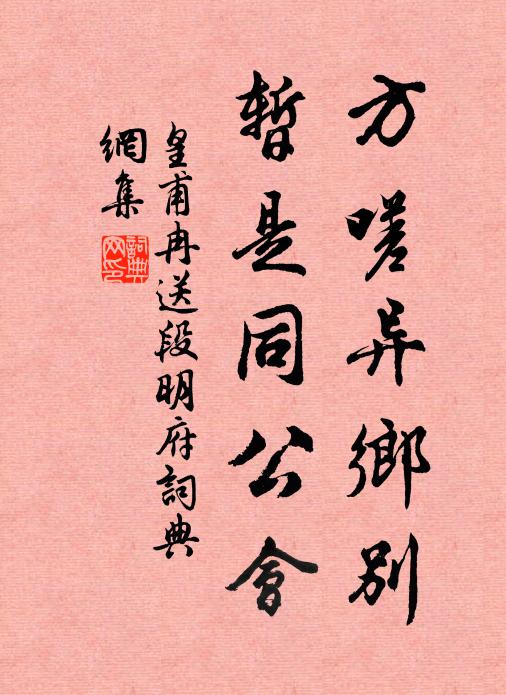 方嗟异鄉別
暫是同公會
皇甫冉送段明府詞典
網集
詞典
网印